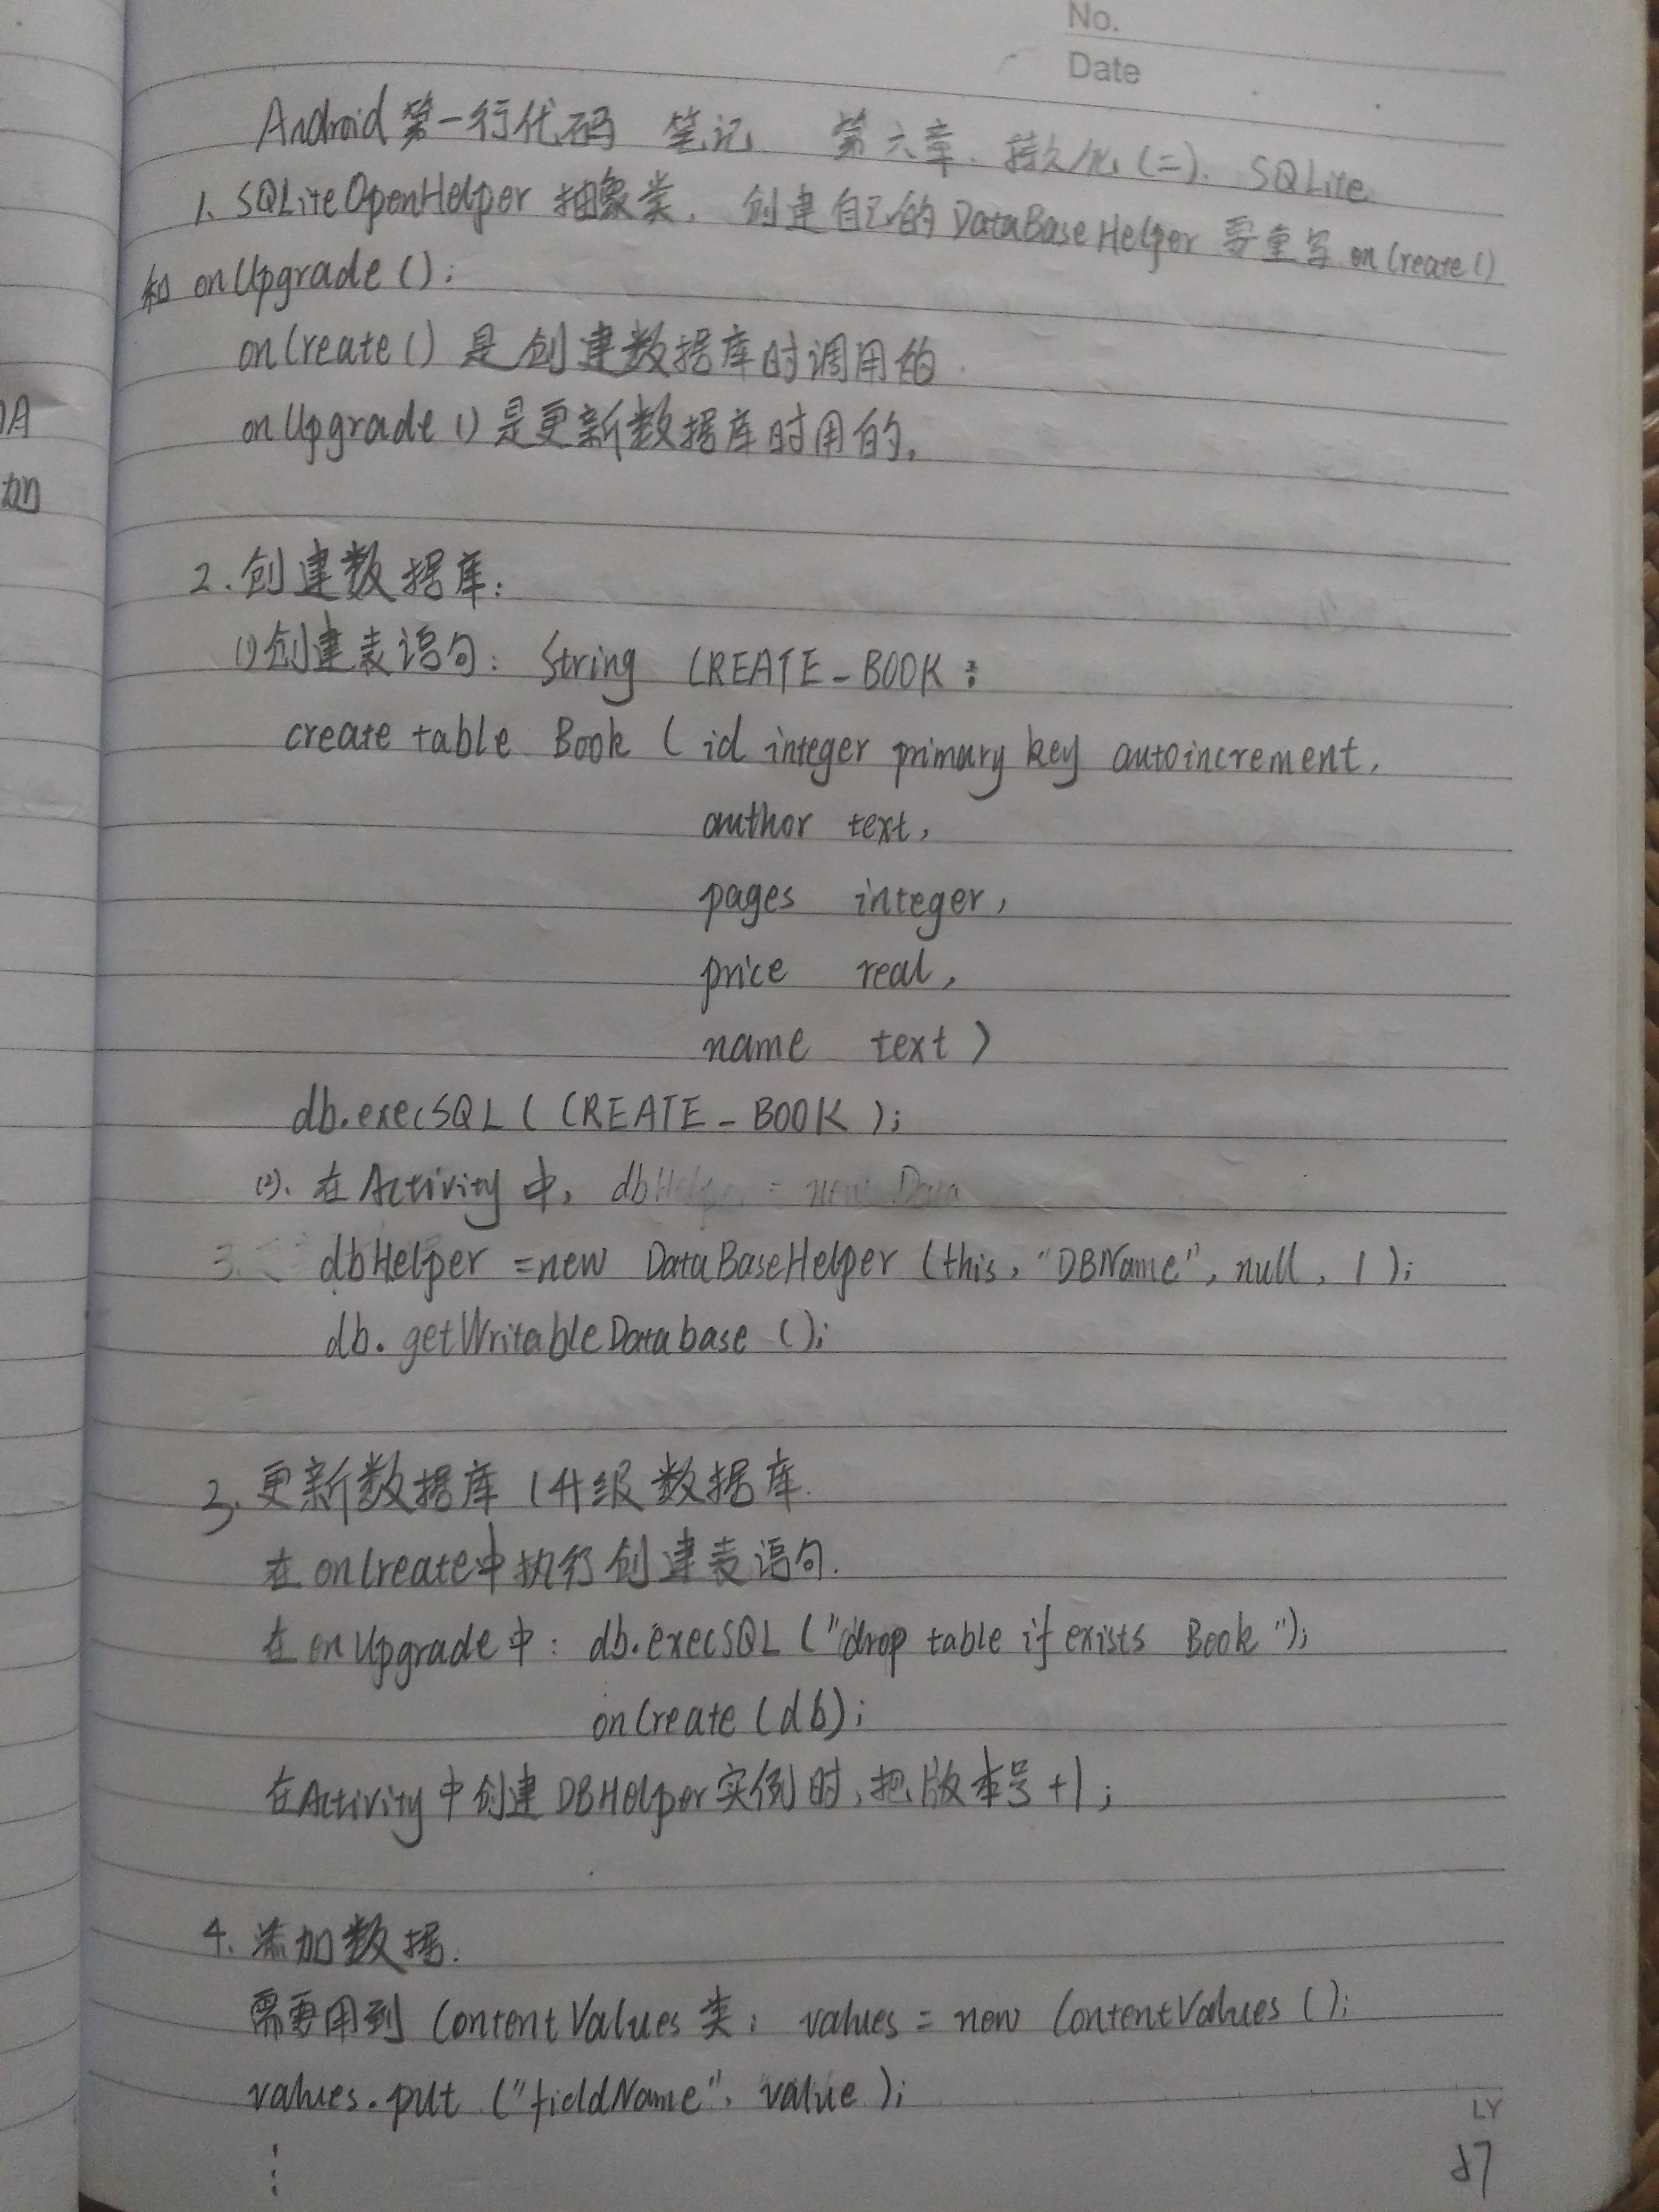 No.
Date
Android 第一行代码 笔记 第六章. 持久化(二). SQLite
1、SQLiteOpenHelper 抽象类. 创建自己的DataBaseHelper 要重写 onCreate()
和 onUpgrade();
onCreate() 是创建数据库时调用的.
onUpgrade()是更新数据库时用的.
2.创建数据库:
(1)创建表语句: String CREATE_BOOK:
create table Book ( id integer primary key autoincrement,
author text,
pages integer,
price real,
name text)
db.execSQL ( CREATE_BOOK );
(2). 在Activity中, dbHelper = new Data
3. dbHelper =new DataBaseHelper (this, "DBName", null, 1 );
db. getWritableDatabase ();
3、更新数据库 (升级数据库.
在onCreate中执行创建表语句.
在onUpgrade中: db.execSQL ("drop table if exists Book");
onCreate (db);
在Activity中创建DBHelper实例时,把版本号+1;
4. 添加数据.
需要用到 ContentValues类: values = new ContentValues ();
values.put ("fieldName", value );
⋮
LY
DA
加